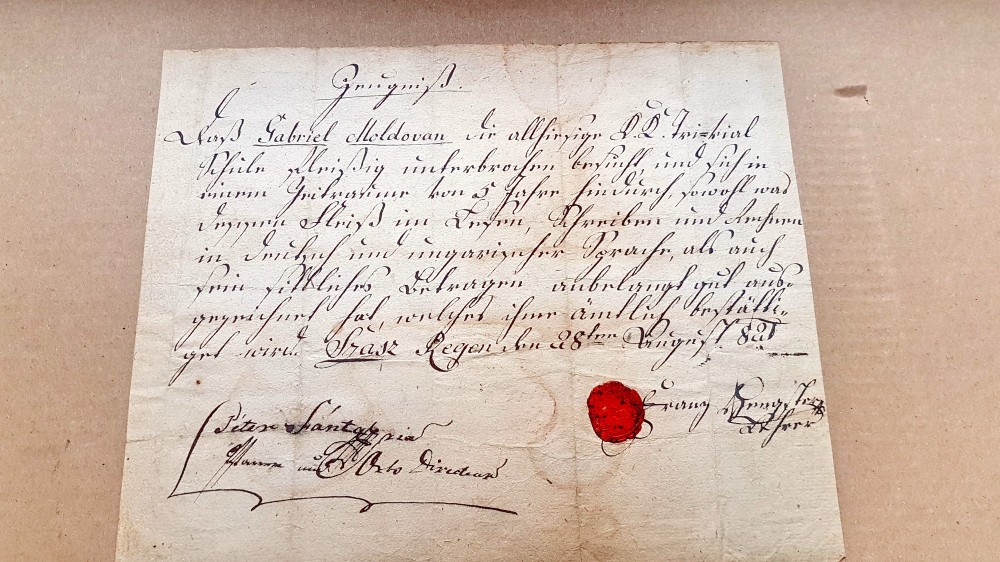 Zeugniß.
Daß Gabriel Moldovan die allhiesige K.K. Trivial
Schule fleißig unterbrochen besucht und sich in
einem Zeitraume von 5 Jahre hindurch, sowohl was
dessen Fleiß im Lesen, Schreiben und Rechnen
in deutsch und ungarischer Sprache, als auch
sein sittliches Betragen anbelangt gut aus-
gezeichnet hat, welches ihme ämtlich bestätti-
get wird. Szasz Regen den 28ten August
Franz
Lehrer
Péter
Pfarrer und Orts Director